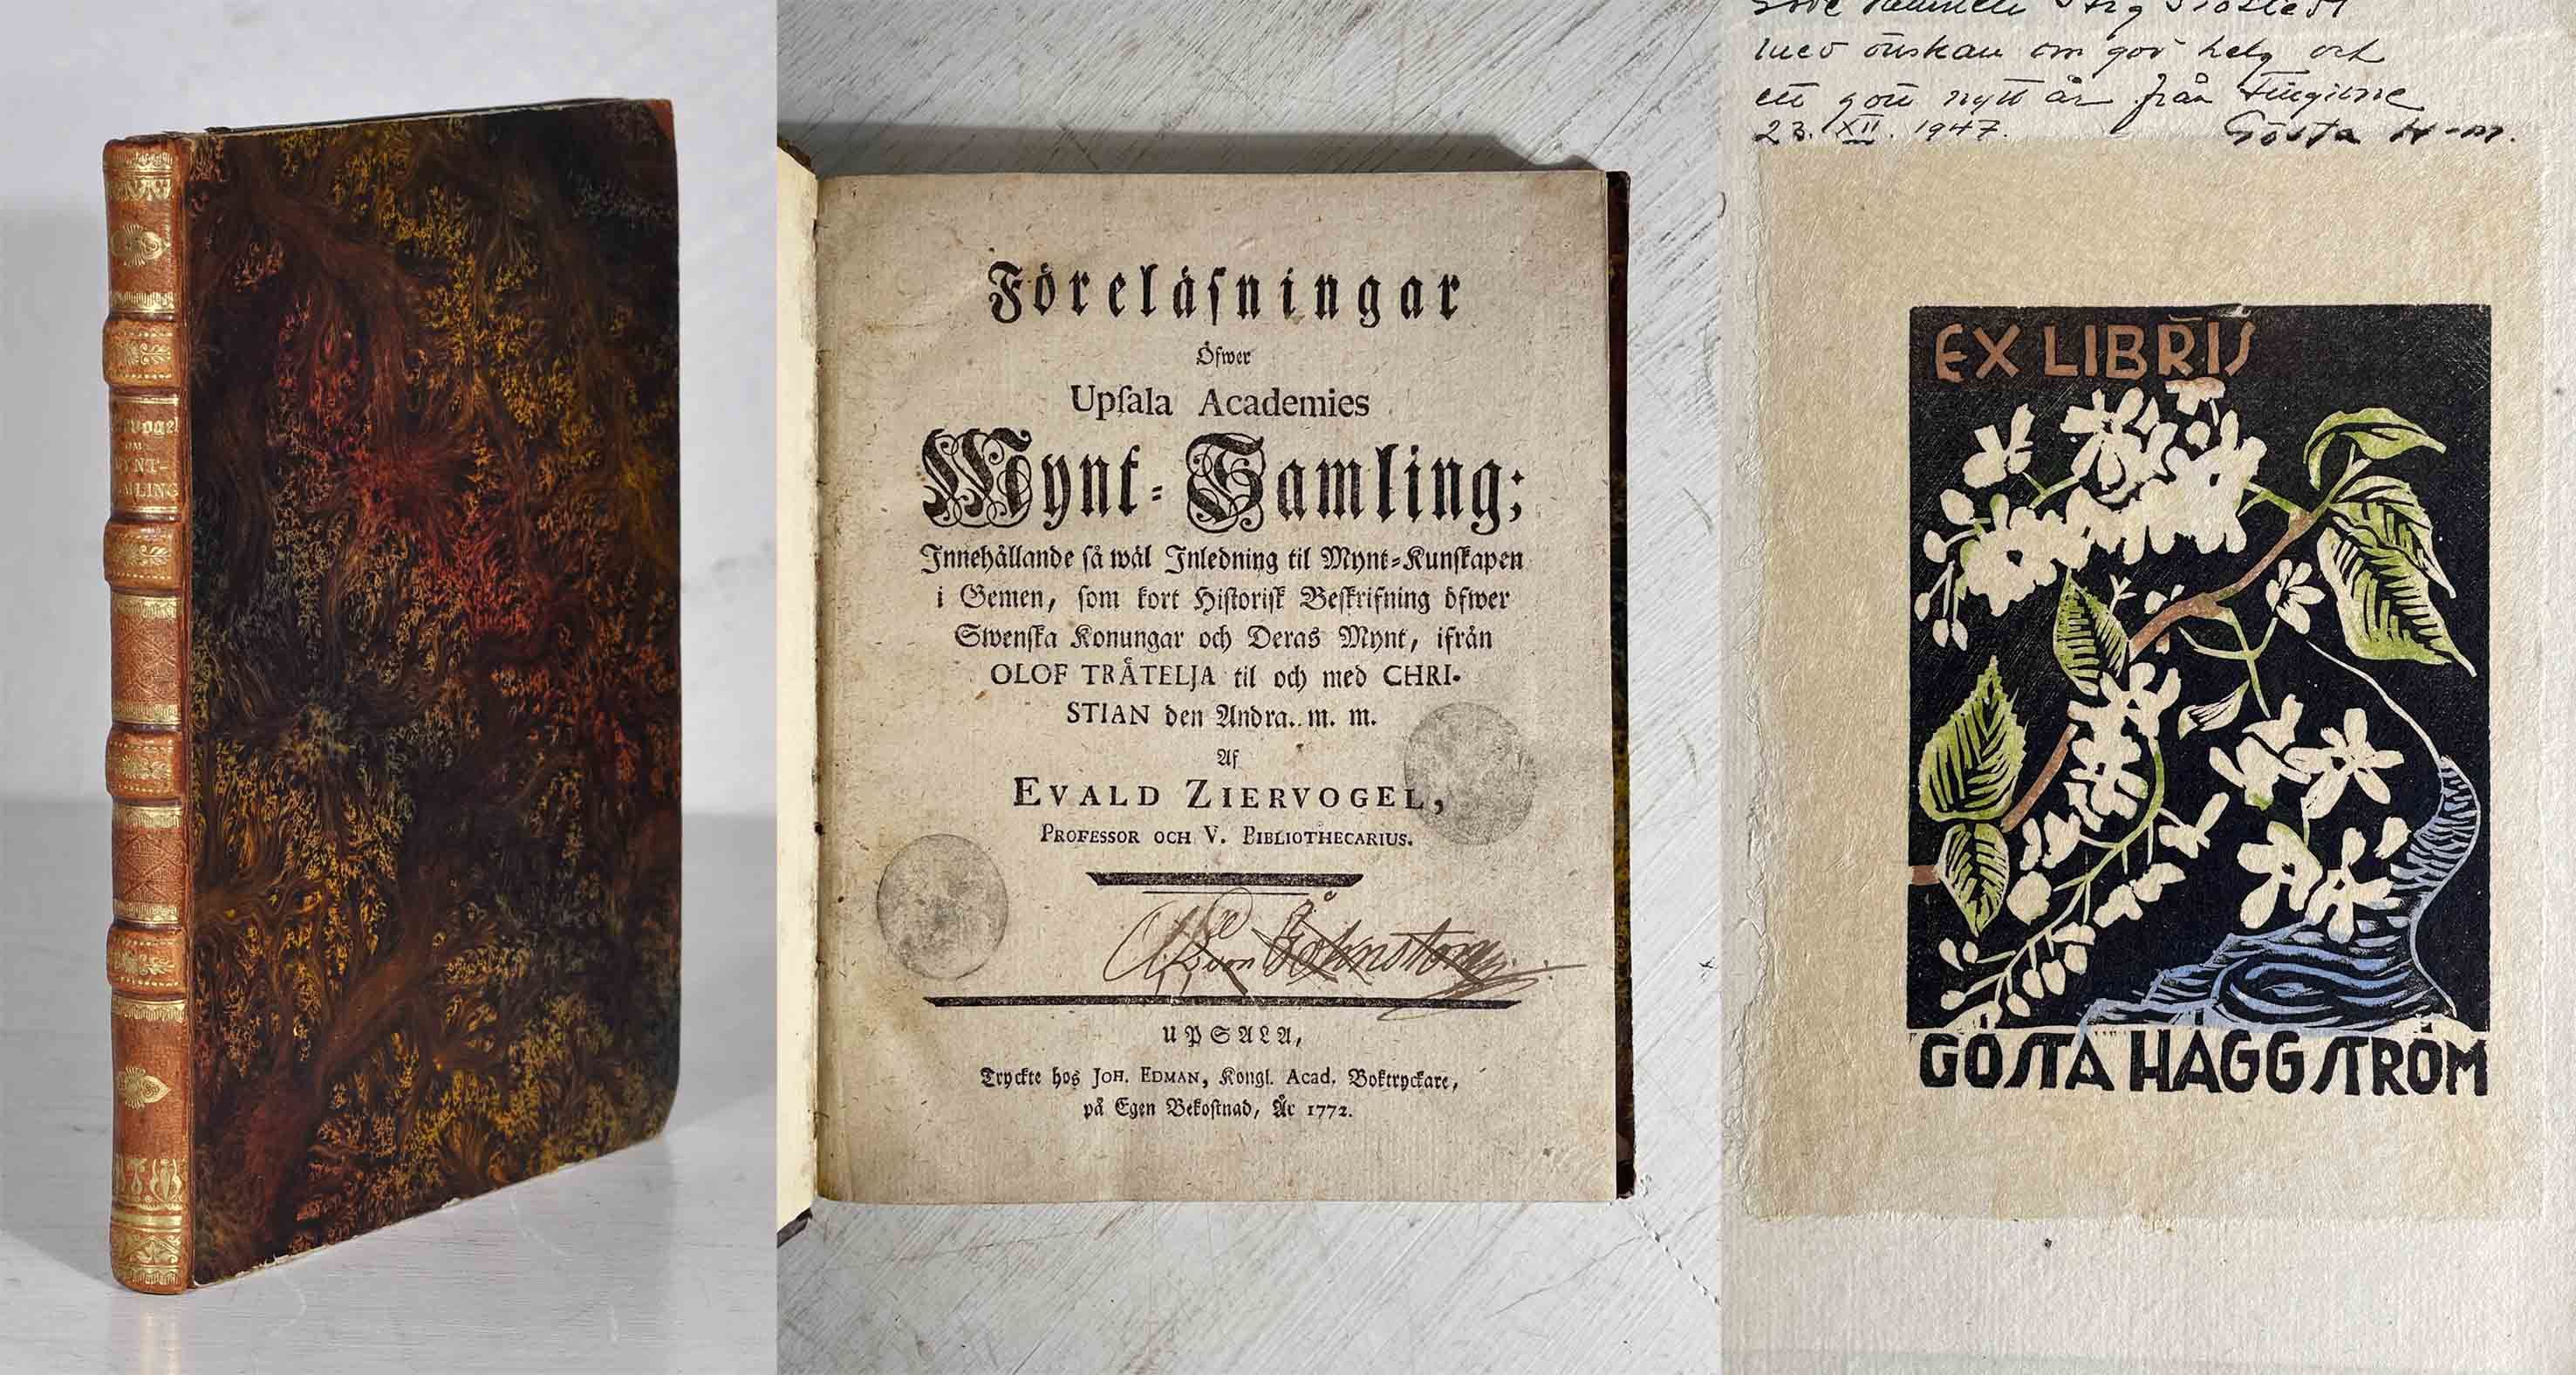 OM
MYNT-
Föreläsningar
Öfwer
Upſala Academies
Mynt-Samling;
Innehållande ſå wäl Inledning til Mynt-Kunſkapen
i Gemen, ſom kort Hiſtoriſk Beſkrifning öfwer
Swenſka Konungar och Deras Mynt, ifrån
OLOF TRÄTELJA til och med CHRI-
STIAN den Andra. m. m.
Af
EVALD ZIERVOGEL,
PROFESSOR OCH V. BIBLIOTHECARIUS.
von
UPSALA,
Tryckte hos JOH. EDMAN, Kongl. Acad. Boktryckare,
på Egen Bekoſtnad, År 1772.
med önskan om god helg och
ett gott nytt år från
23. XII. 1947. Gösta H-m.
EX LIBRIS
GÖSTA HÄGGSTRÖM